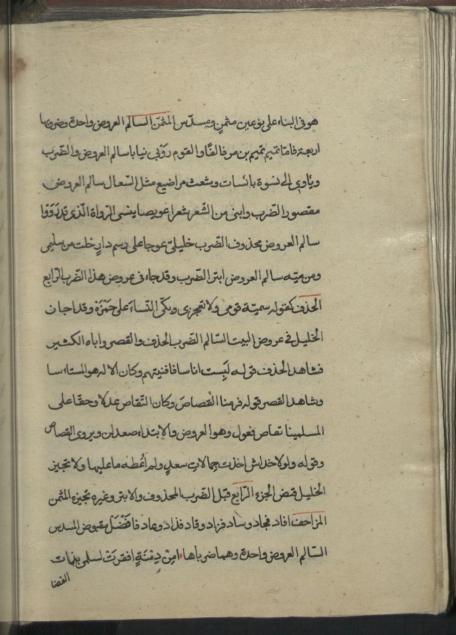 هو فى البناء على نوعين مثمن ومسدس المثمن السالم العروض واحدة وضروبها
اربعة فاما تميم تميم بن مر فالفاو القوم روبى نياما سالم العروض والضرب
وياوى الى نسوة بائسات وشعث مراضيع مثل السعال سالم العروض
مقصور الضرب وابنى من الشعر شعرا عويصا ينسى الرواة الذى قد رووا
سالم العروض محذوف الضرب خليلى عوجا على رسم دار خلت من سليمى
ومن ميه سالم العروض ابتر الضرب وقد جاء فى عروض هذا الضرب الرابع
الحذف كقوله سمية قومى ولا تعجزى وبكى النساء على حمزة وقد اجاز
الخليل فى عروض البيت السالم الضرب الحذف والقصر واباه الكثير
فشاهد الحذف قوله لبست اناسا فافنيتهم وكان الاله هو المستاسا
وشاهد القصر قوله فرمنا القصاص وكان التقاص عدلا وحقا على
المسلمينا تقاص فعول وهو العروض والابتداء صعدان ويروى القصاص
وقوله ولولا خداش اخذت جمالات سعد ولم اعطه ما عليها ولا تجيز
الخليل قبض الجزء الرابع قبل الضرب المحذوف والابتر وغيره تجيزه المثمن
المزاحف افاد فجاد وساد فزاد وقاد فذاد وعاد فافضل مقبوض المسدس
السالم العروض واحدة وهما ضرباها امن دمنة اقفرت لسلمى بذات
الغضا